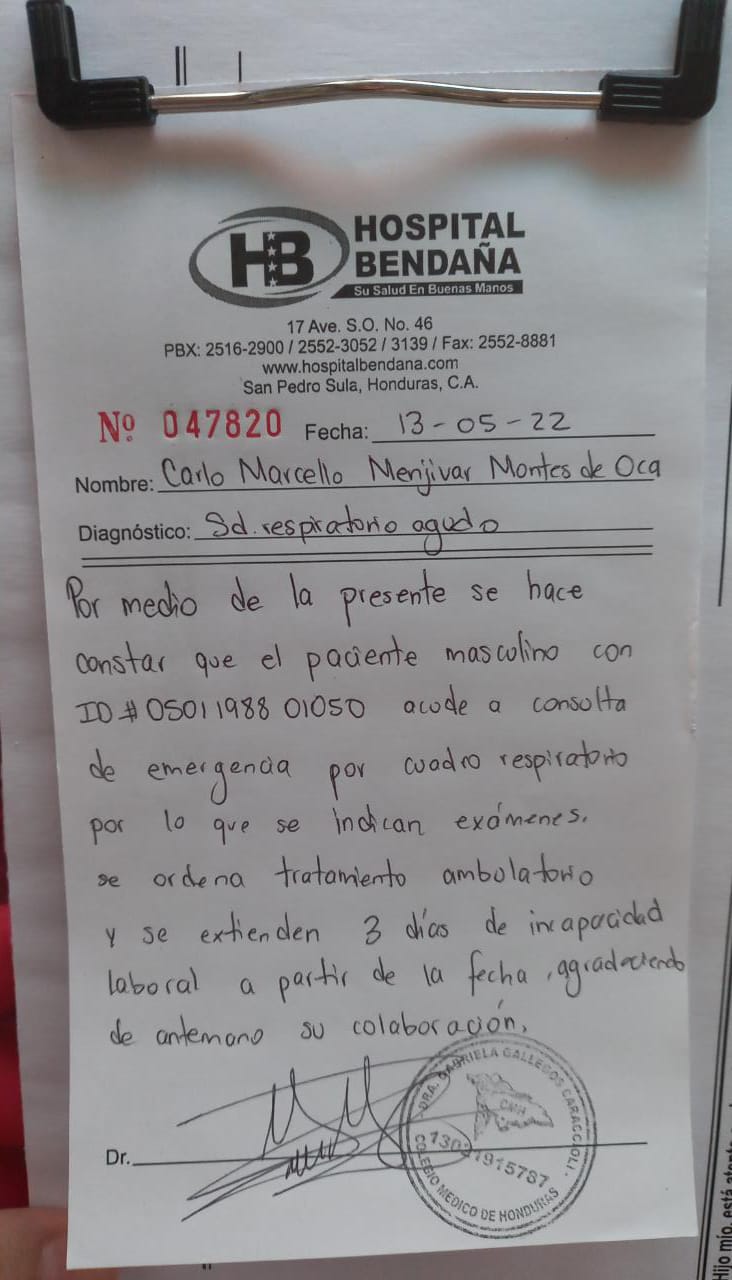 HB
HOSPITAL
BENDAÑA
Su Salud En Buenas Manos
17 Ave. S.O. No. 46
PBX: 2516-2900 / 2552-3052 / 3139 / Fax: 2552-8881
www.hospitalbendana.com
San Pedro Sula, Honduras, C.A.
Nº 047820 Fecha: 13-05-22
Nombre: Carlo Marcello Menjivar Montes de Oca
Diagnóstico: Sd. respiratorio agudo
Por medio de la presente se hace
constar que el paciente masculino con
ID # 05011988 01050 acude a consulta
de emergencia por cuadro respiratorio
por lo que se indican exámenes.
se ordena tratamiento ambulatorio
y se extienden 3 días de incapacidad
laboral a partir de la fecha, agradeciendo
de antemano su colaboración.
Dr.
DRA. GABRIELA GALLEGOS CARACCIOLI
CMH
COLEGIO MEDICO DE HONDURAS
Hijo mío, está